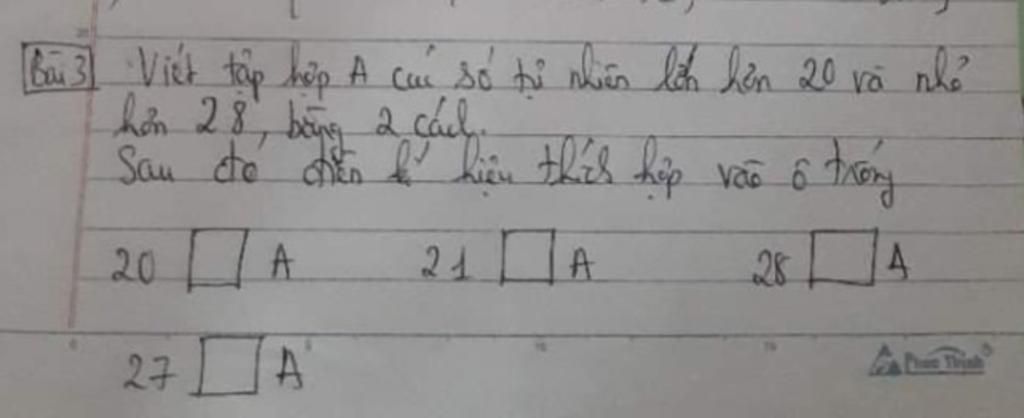 Bài 3 Viết tập hợp A các số tự nhiên lớn hơn 20 và nhỏ
hơn 28, bằng 2 cách.
Sau đó điền kí hiệu thích hợp vào ô trống
20 A 21 A 28 A
27 A
Phuc Thinh